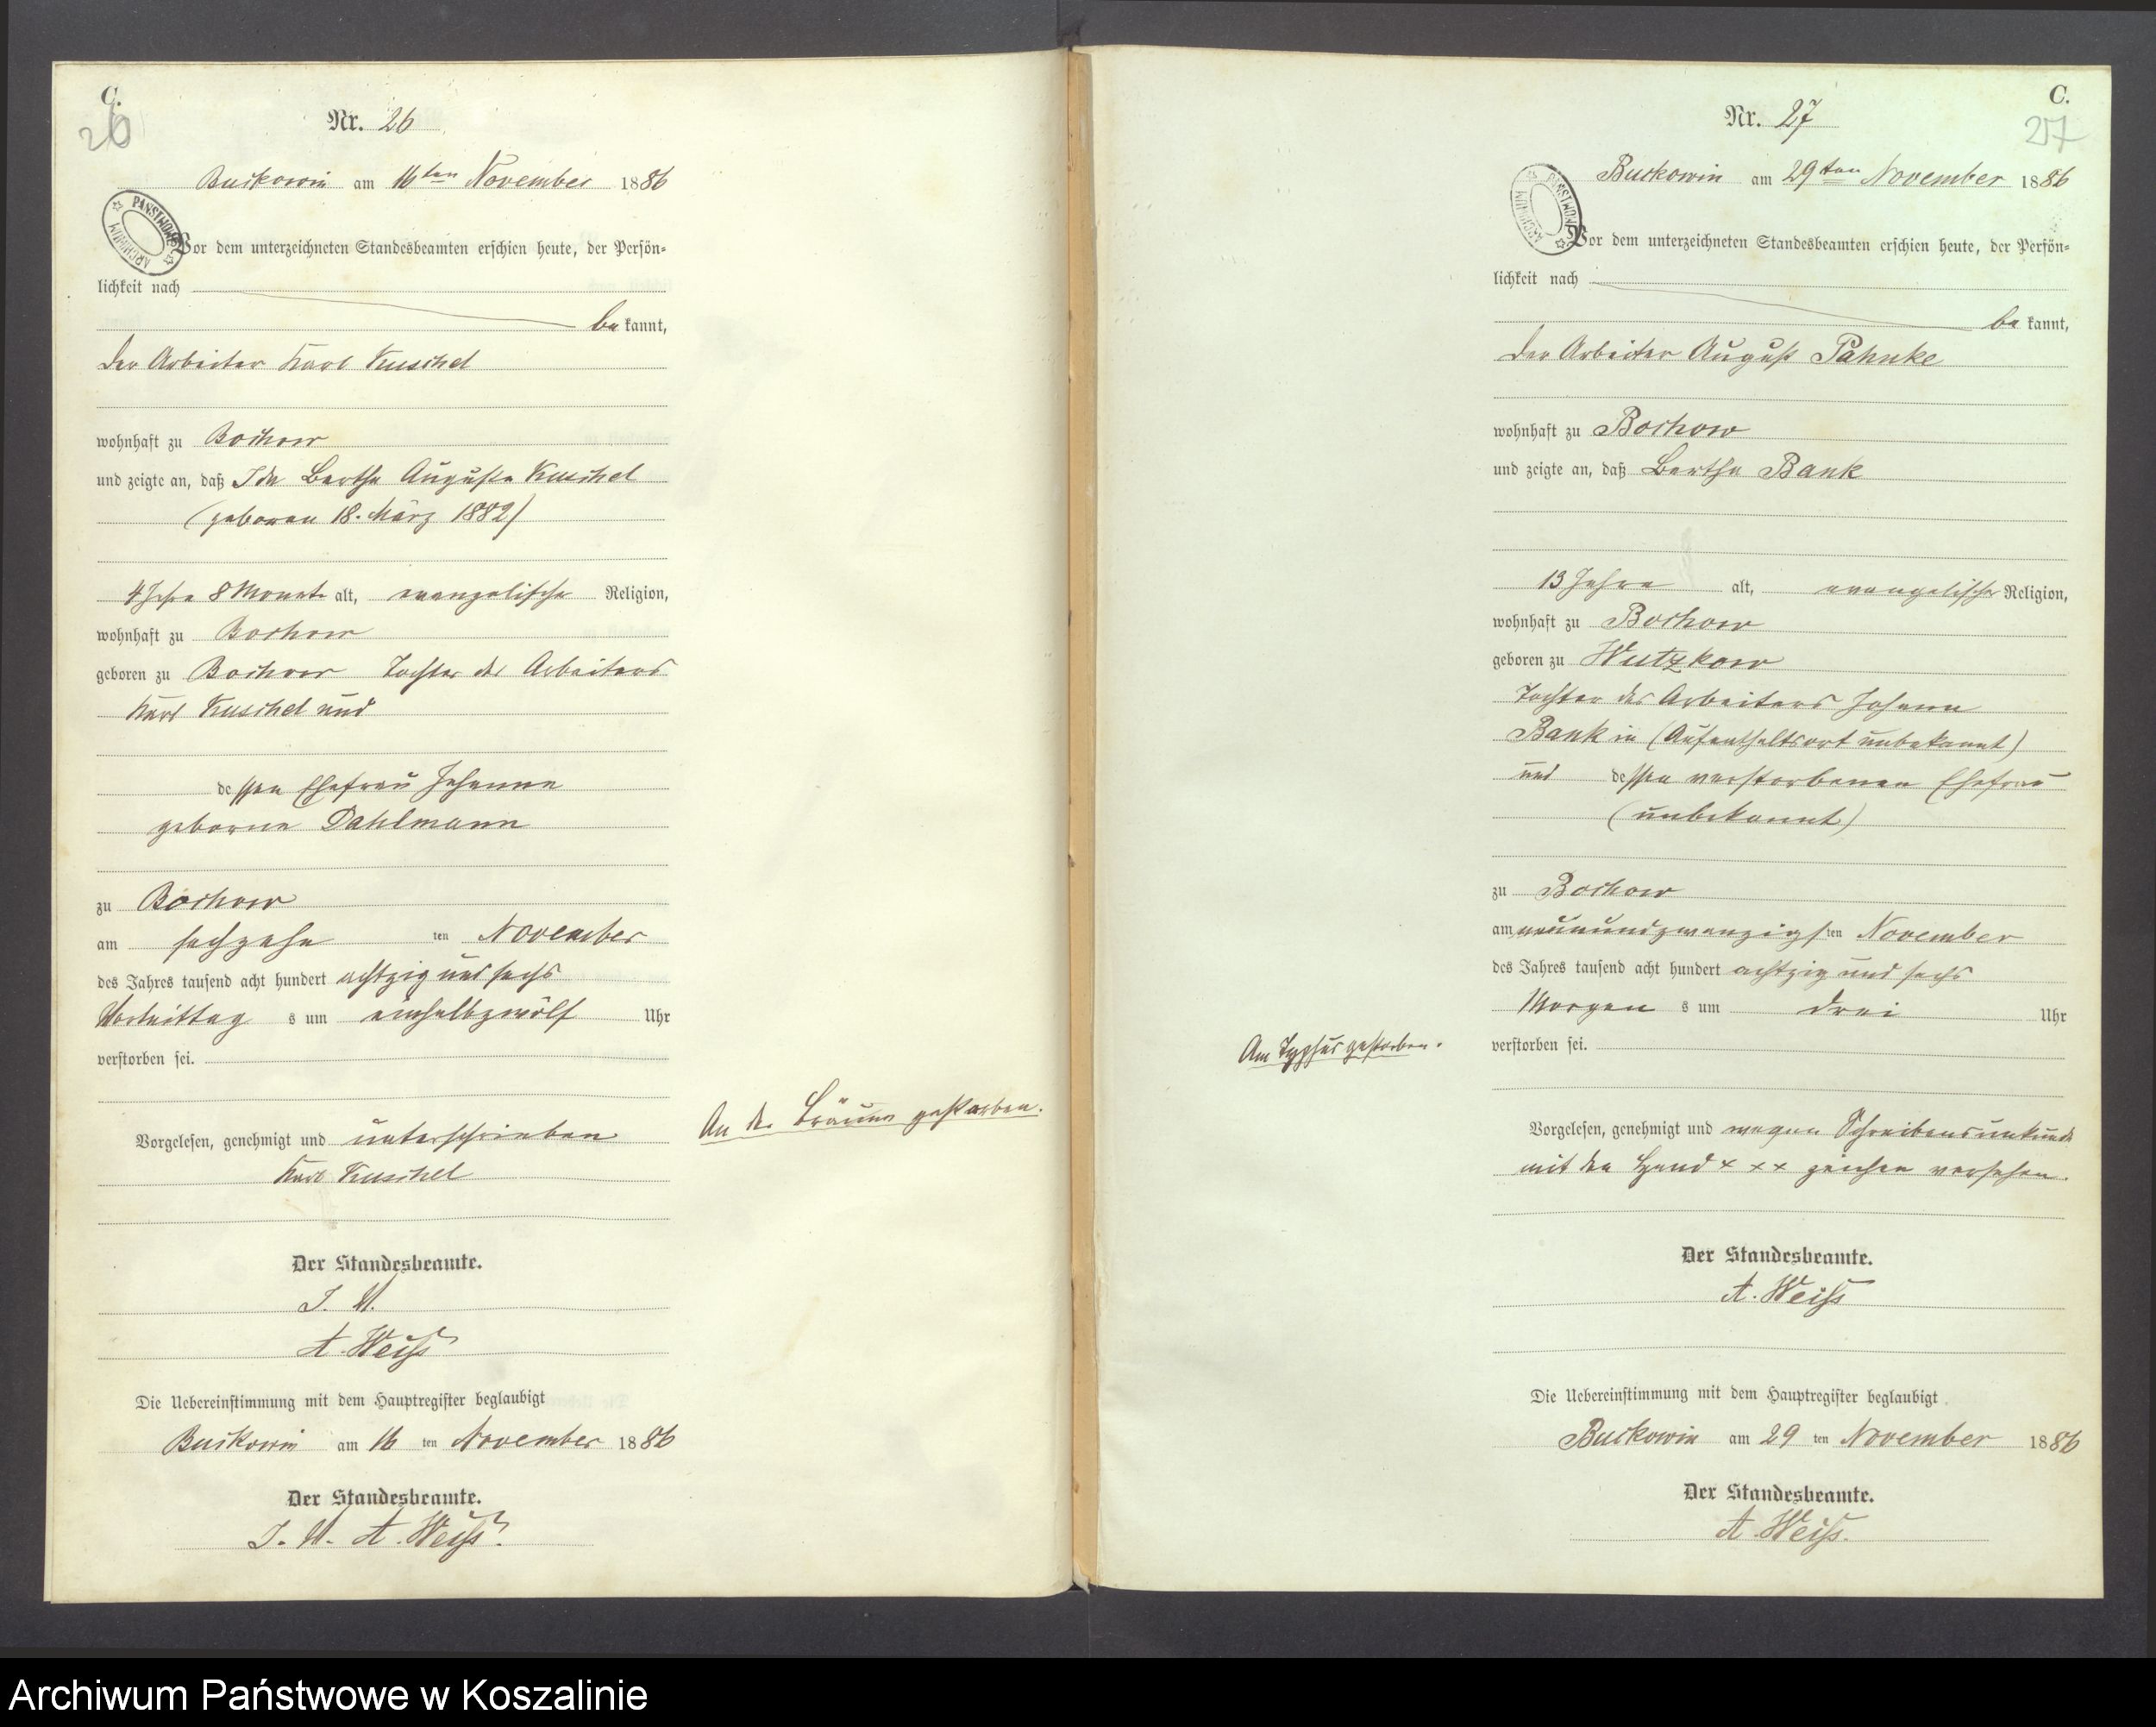 C.
26
Nr. 26
Buckowin am 16ten November 1886
ARCHIWUM PAŃSTWOWE
Vor dem unterzeichneten Standesbeamten erschien heute, der Persön=
lichkeit nach
be kannt,
der Arbeiter Karl Kuschel
wohnhaft zu Bochow
und zeigte an, daß Ida Bertha Auguste Kuschel
(geboren 18. März 1882)
4 Jahre 8 Monate alt, evangelischer Religion,
wohnhaft zu Bochow
geboren zu Bochow Tochter des Arbeiters
Karl Kuschel und
dessen Ehefrau Johanne
geborene Dahlmann
zu Bochow
am sechzehn ten November
des Jahres tausend acht hundert achtzig und sechs
Vormittag s um einhalbzwölf Uhr
verstorben sei.
An der Bräune gestorben.
Vorgelesen, genehmigt und unterschrieben
Karl Kuschel
Der Standesbeamte.
J. V.
A. Weiß
Die Uebereinstimmung mit dem Hauptregister beglaubigt
Buckowin am 16 ten November 1886
Der Standesbeamte.
J. V. A. Weiß.
C.
27
Nr. 27
Buckowin am 29ten November 1886
ARCHIWUM PAŃSTWOWE
Vor dem unterzeichneten Standesbeamten erschien heute, der Persön=
lichkeit nach
be kannt,
der Arbeiter August Pahnke
wohnhaft zu Bochow
und zeigte an, daß Bertha Bank
13 Jahre alt, evangelischer Religion,
wohnhaft zu Bochow
geboren zu Wutzkow
Tochter des Arbeiters Johann
Bank in (Aufenthaltsort unbekannt)
und dessen verstorbenen Ehefrau
(unbekannt)
zu Bochow
am neunundzwanzigs ten November
des Jahres tausend acht hundert achtzig und sechs
Morgen s um drei Uhr
Am Typhus gestorben.
verstorben sei.
Vorgelesen, genehmigt und wegen Schreibensunkunde
mit den Hand x x x zeichen versehen.
Der Standesbeamte.
A. Weiß
Die Uebereinstimmung mit dem Hauptregister beglaubigt.
Buckowin am 29 ten November 1886
Der Standesbeamte.
A. Weiß.
Archiwum Państwowe w Koszalinie